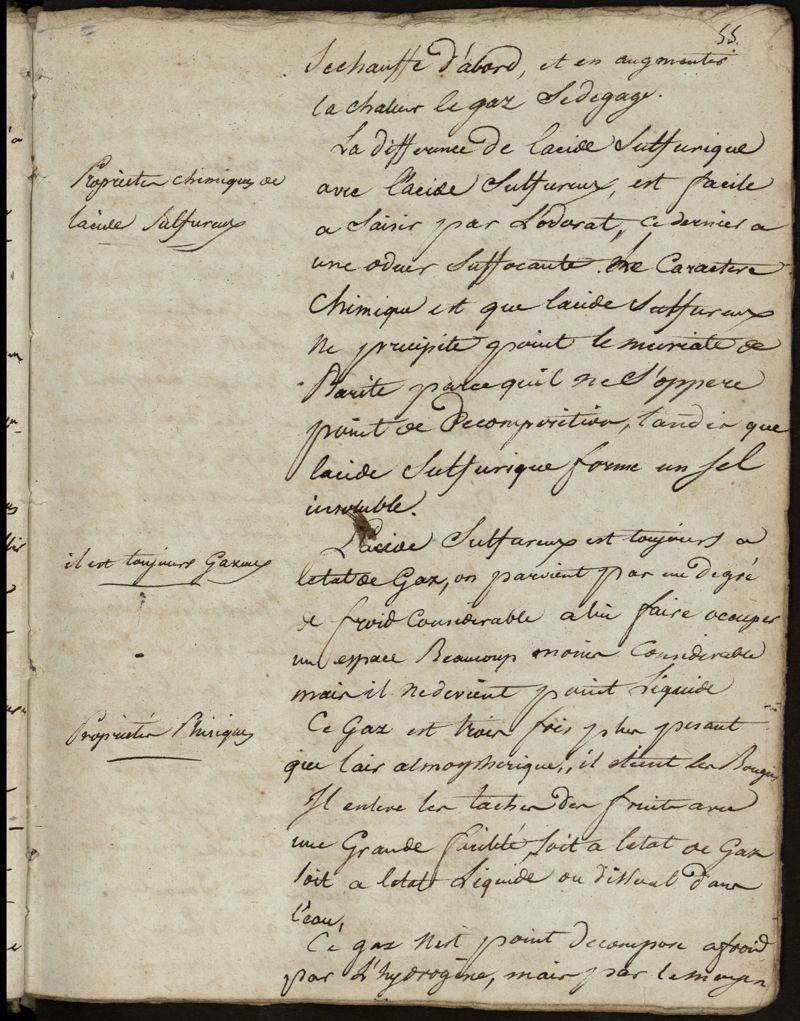 55.
Sechauffe d'abord, et en augmenter
la chaleur le gaz Sedegage.
La difference de lacide Sulfurique
Proprietes chimiques de
avec l'acide Sulfureux, est facile
lacide Sulfureux
a Saisir par Lodorat, ce dernier a
une odeur Suffocante. Le Caractere
Chimique est que lacide Sulfureux
ne precipite point le muriate de
Barite parcequil ne S'oppere
point de Decomposition, tandis que
lacide Sulfurique forme un sel
insoluble.
Lacide Sulfureux est toujours a
il est toujours Gazeux
letat de Gaz, on parvient par un degré
de froid Considerable a lui faire ocuper
un espace Beaucoup moins Considerable
mais il nedevient point Liquide
Proprietés Phisiques
Ce Gaz est trois fois plus pesant
que lair atmospherique, il eteint les Bougies
Il enleve les taches des fruits avec
une Grande facilité, soit a letat de Gaz
soit a letat Liquide ou dissout dans
l'eau,
Ce gaz nest point decomposé afroid
par L'hydrogène, mais par lemoyen